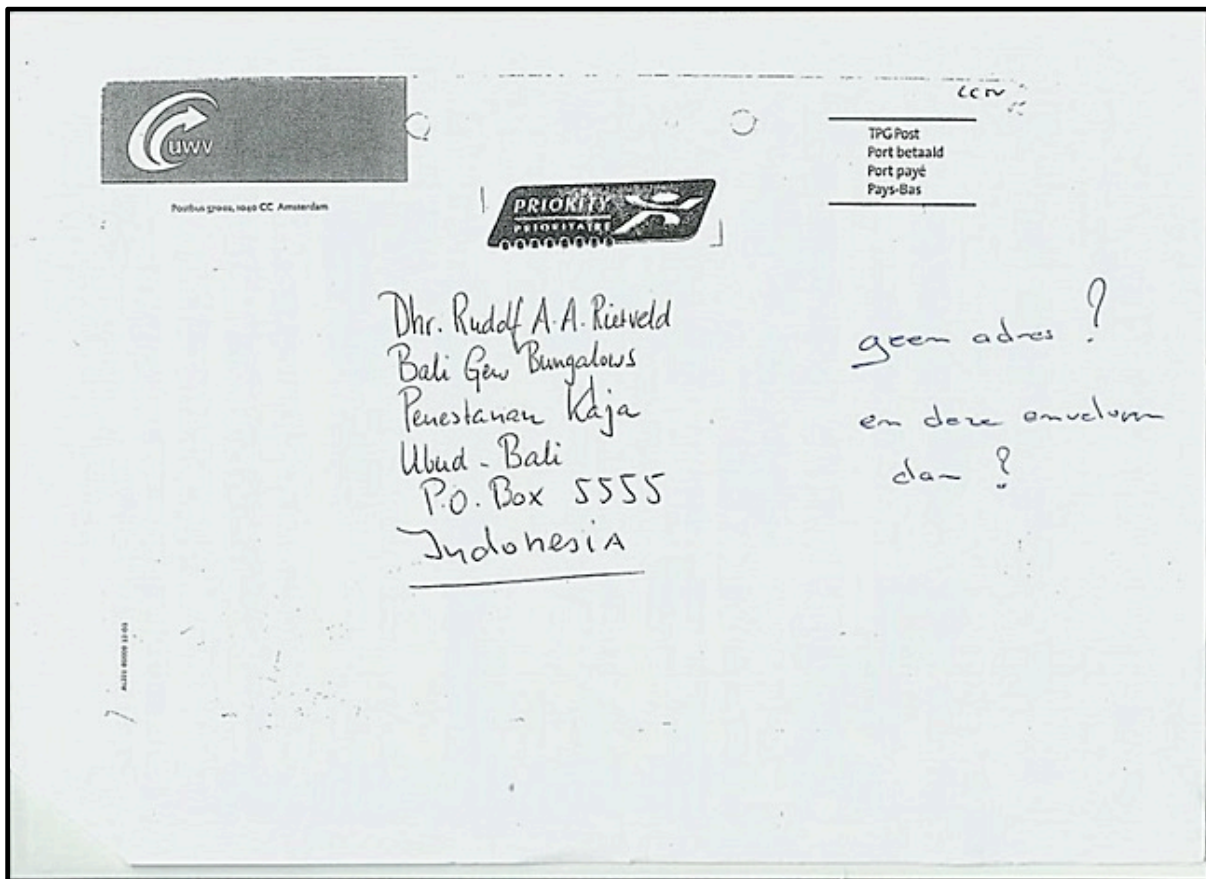 uwv
Postbus
1040 CC Amsterdam
PRIORITY
PRIORITAIRE
TPG Post
Port betaald
Port payé
Pays-Bas
Dhr. Rudolf A.A. Rietveld
Bali Gen Bungalows
Penestanan Kaja
Ubud - Bali
P.O. Box 5555
Indonesia
geen adres ?
en deze enveloppen
dan ?